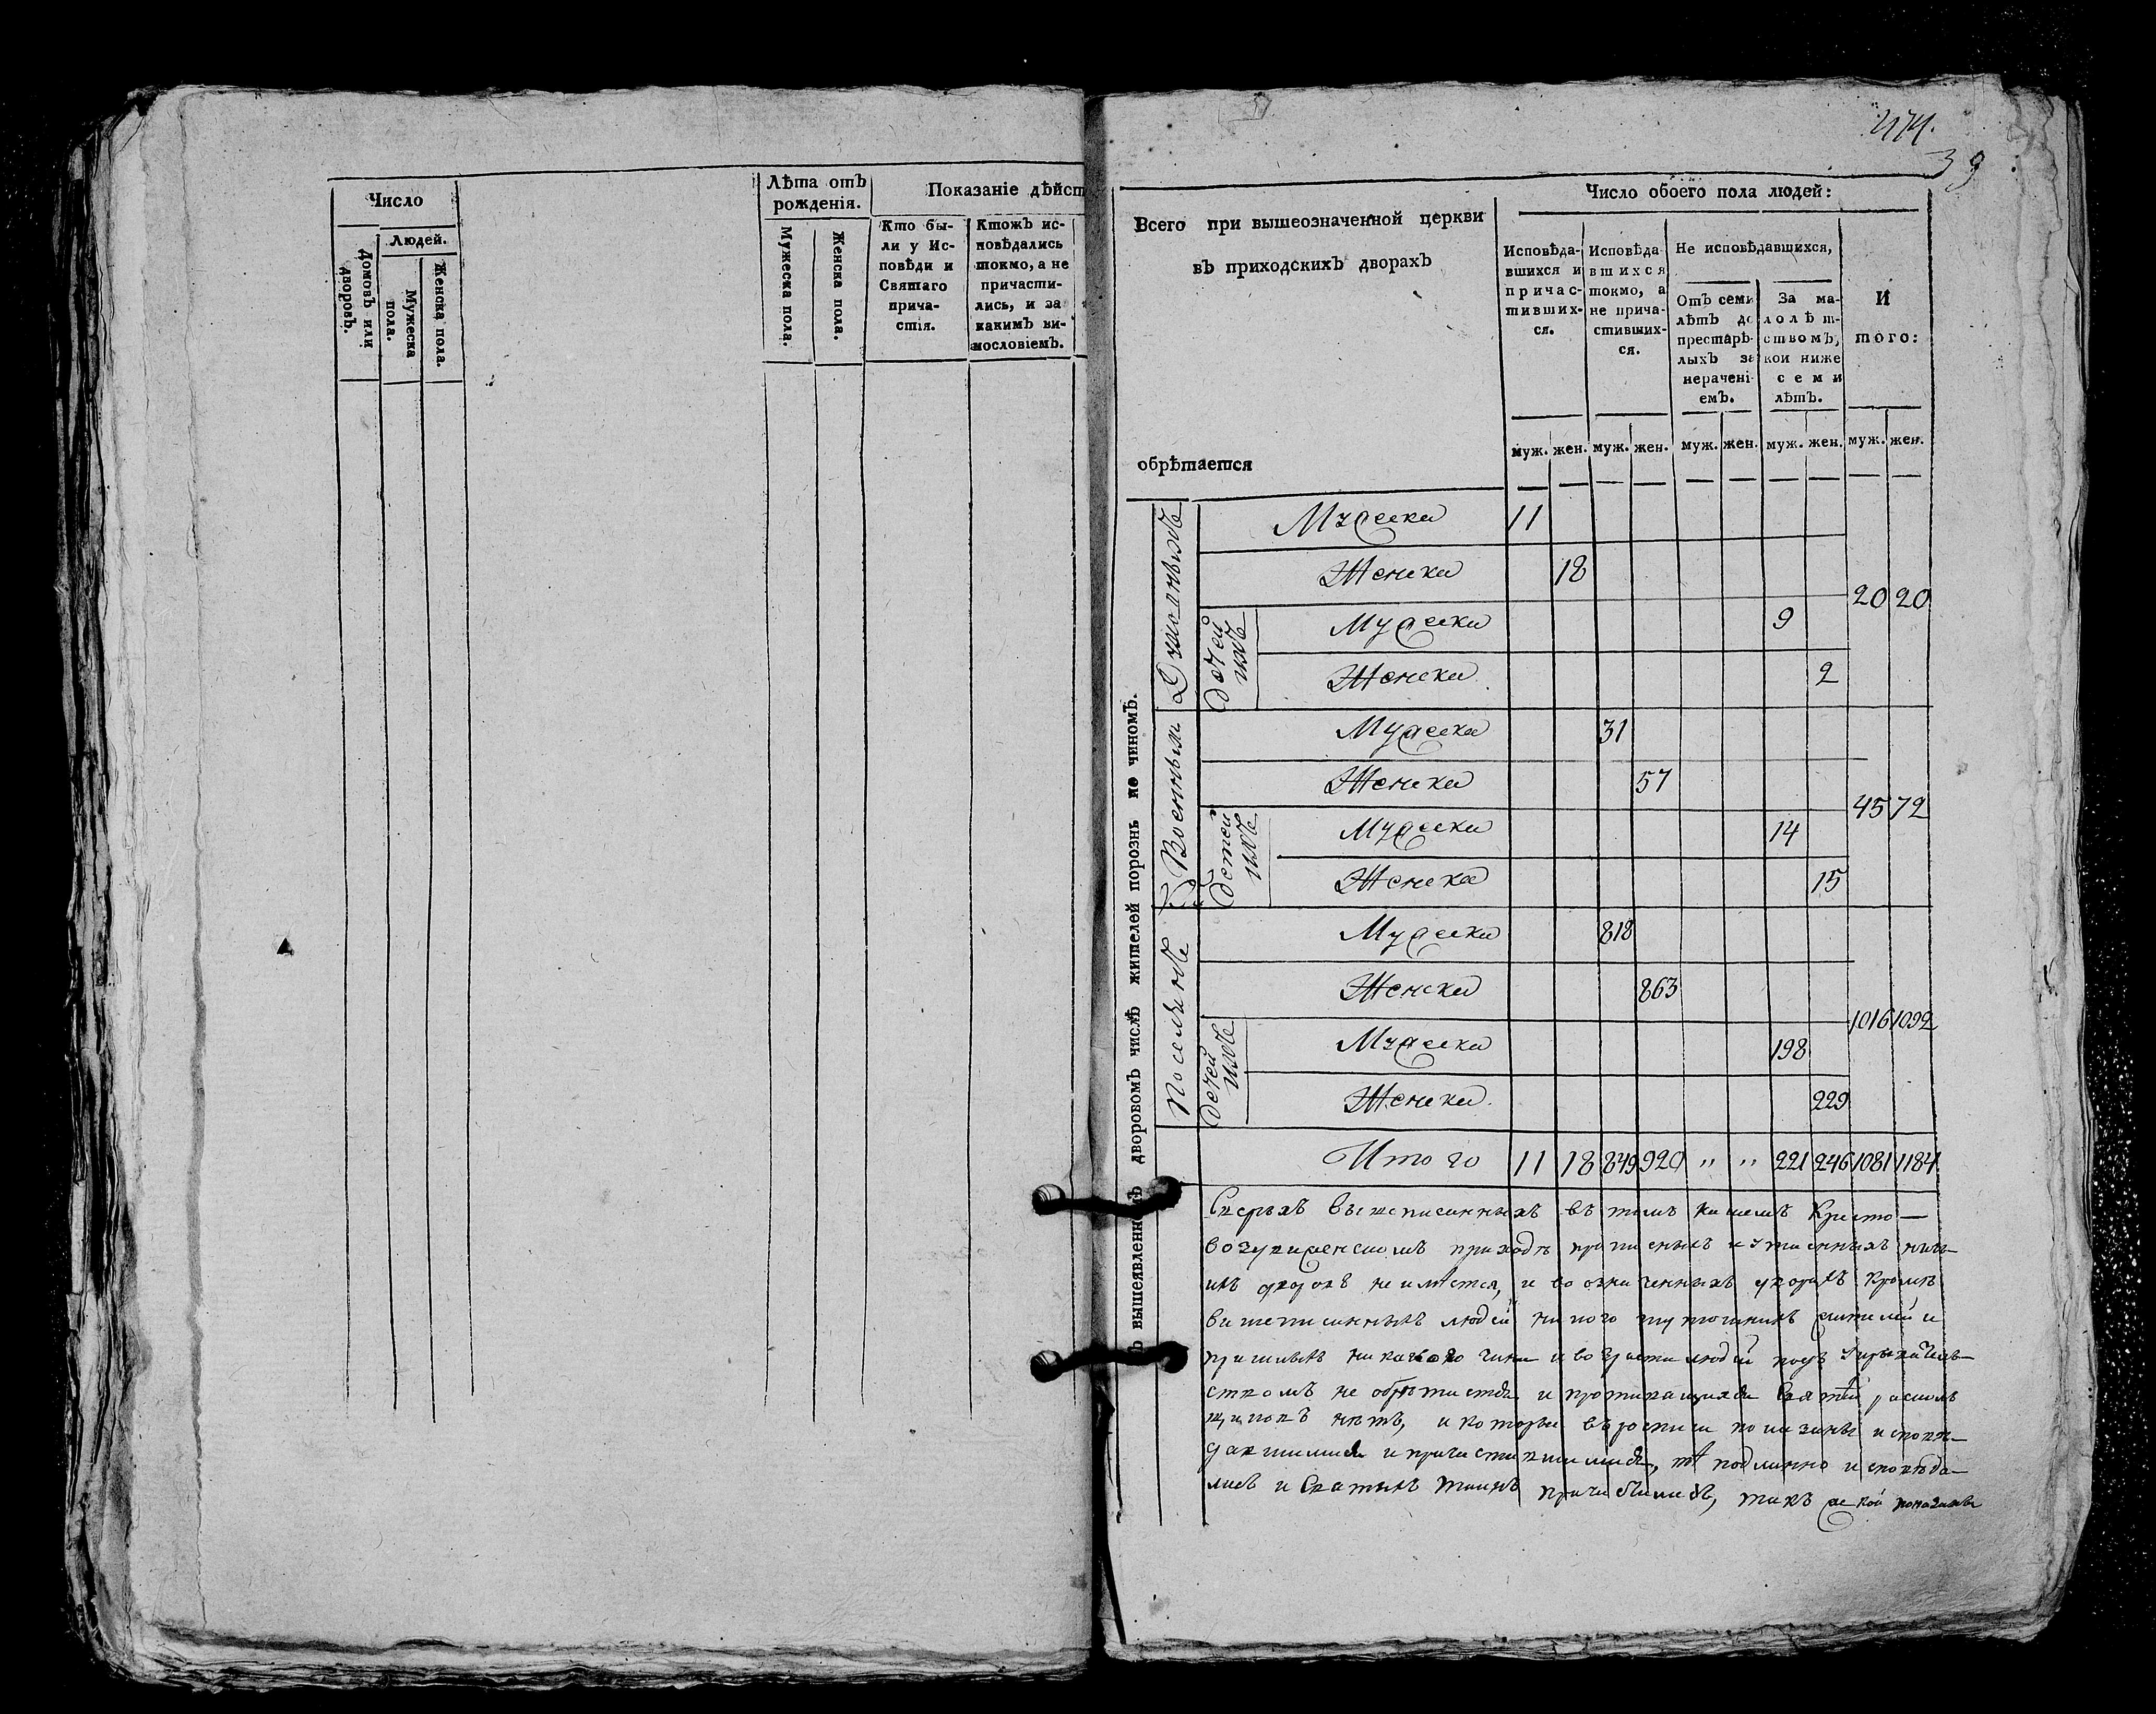 Число
Людей.
Домовъ или дворовъ.
Мужеска пола.
Женска пола.
Лѣта отъ
рожденія.
Мужеска пола.
Женска пола.
Показаніе дѣйст
Кто бы-
ли у Ис-
повѣди и
Святаго
прича-
стія.
Ктожъ ис-
повѣдались
токмо, а не
причасти-
лись, и за
какимъ ви-
нословіемъ.
474.
39
Всего при вышеозначенной церкви
въ приходскихъ дворахъ
обрѣтается
Число обоего пола людей:
Исповѣда-
вшихся и
причас-
тивших-
ся.
Исповѣда
вшихся
токмо, а
не прича-
стивших-
ся.
Не исповѣдавшихся,
Отъ семи
лѣтъ до
престарѣ-
лыхъ за
нерачені-
емъ.
За ма-
лолѣт-
ствомъ,
кои ниже
семи
лѣтъ.
И
того:
муж. жен. муж. жен. муж. жен. муж. жен. муж. жен.
вышеявленномъ дворовомъ числѣ жителей порознь по чиномъ.
Духовныхъ
Мужеска 11
Женска 18
20 20
Детей ихъ
Мужеска 9
Женска 2
Военныхъ
Мужеска 31
Женска 57
45 72
Детей ихъ
Мужеска 14
Женска 15
Поселянъ
Мужеска 818
Женска 863
1016 1092
Детей ихъ
Мужеска 198
Женска 229
Итого 11 18 849 920 " " 221 246 1081 1184
Сверхъ вышеписанныхъ въ томъ нашемъ Кресто-
воздвиженскомъ приходѣ прописныхъ и утаенныхъ ника-
ихъ дворовъ не имѣется, и во означенныхъ дворахъ кромѣ
вышеписанныхъ людей никого тутошнихъ жителей и
пришлыхъ никакого чина и возраста людей подъ
ствомъ не обрѣтается и противящихся Святѣй расколь
щиковъ нѣтъ, и которые въ росписи показаны исповѣ-
давшимися и причастившимися, тѣ подлинно исповѣда-
лись и Святыхъ Таинъ причастились, такъ же кои показаны